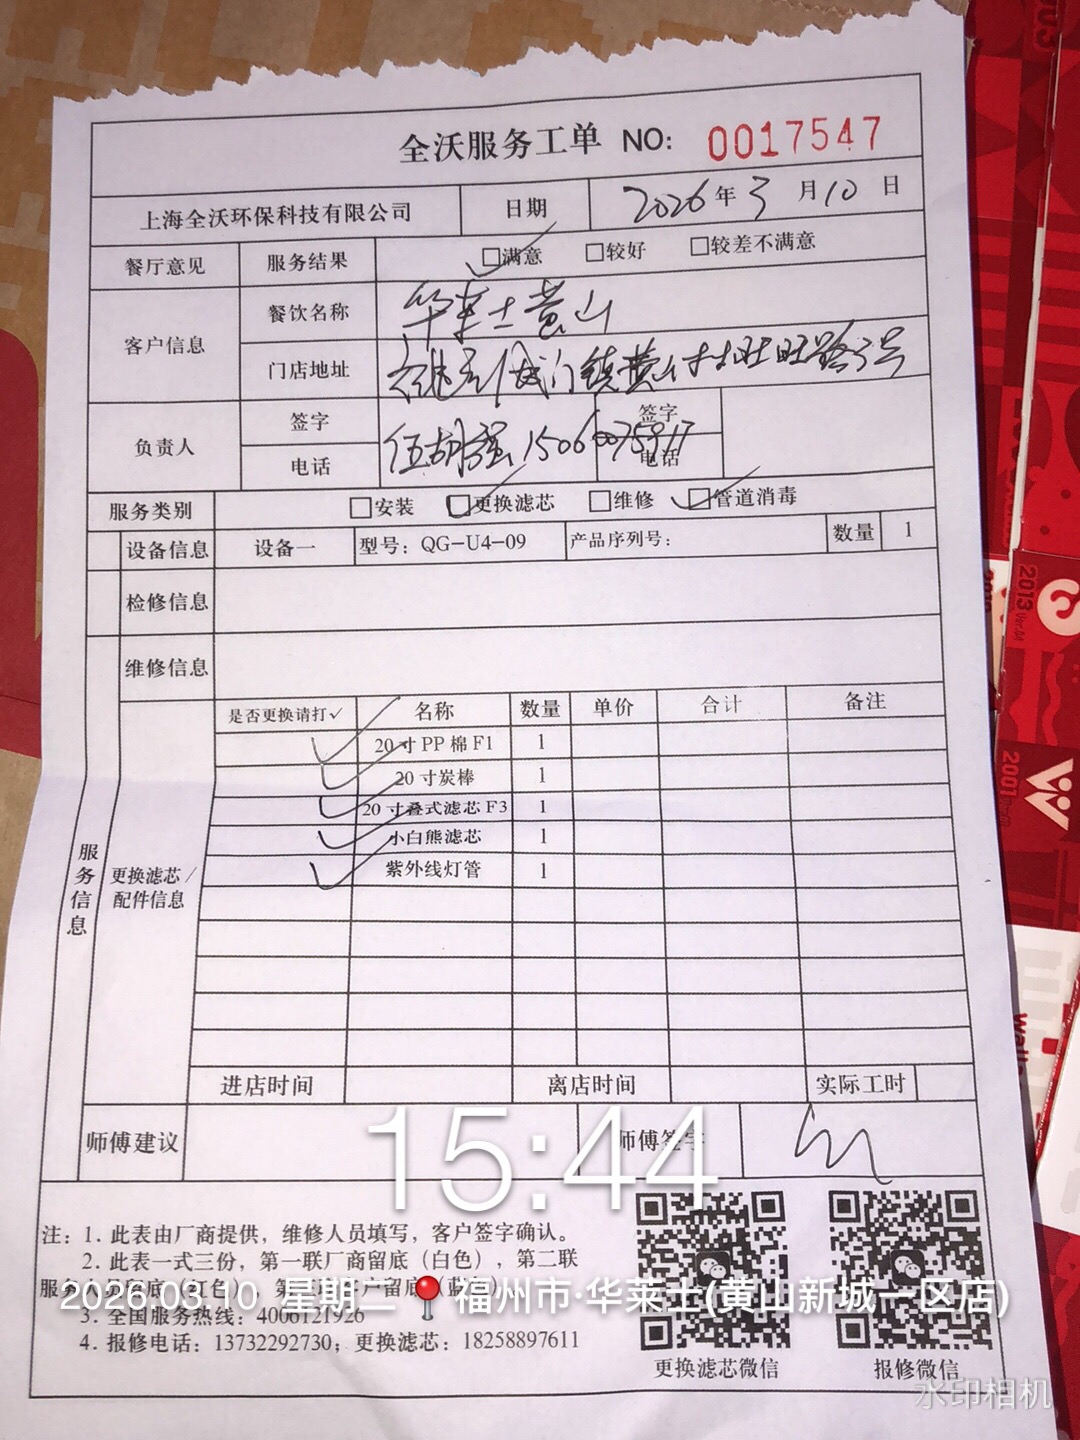 全沃服务工单 NO: 0017547
上海全沃环保科技有限公司 日期 2026年3月10日
餐厅意见 服务结果 □满意 □较好 □较差不满意
客户信息 餐饮名称 华莱士黄山
门店地址 城门镇黄山村旺旺路3号
负责人 签字 签字
电话 伍胡强 电话
服务类别 □安装 □更换滤芯 □维修 □管道消毒
设备信息 设备一 型号：QG-U4-09 产品序列号： 数量 1
检修信息
维修信息
是否更换请打✓ 名称 数量 单价 合计 备注
✓ 20寸PP棉F1 1
✓ 20寸炭棒 1
✓ 20寸叠式滤芯F3 1
✓ 小白熊滤芯 1
✓ 紫外线灯管 1
服务信息
更换滤芯/
配件信息
进店时间 离店时间 实际工时
师傅建议 师傅签字
15:44
注：1. 此表由厂商提供，维修人员填写，客户签字确认。
2. 此表一式三份，第一联厂商留底（白色），第二联
服务人员留底（红色），第三联客户留底（蓝色）
2026.03.10 星期二 福州市·华莱士(黄山新城一区店)
3. 全国服务热线：4006121926
4. 报修电话：13732292730；更换滤芯：18258897611
更换滤芯微信 报修微信
水印相机